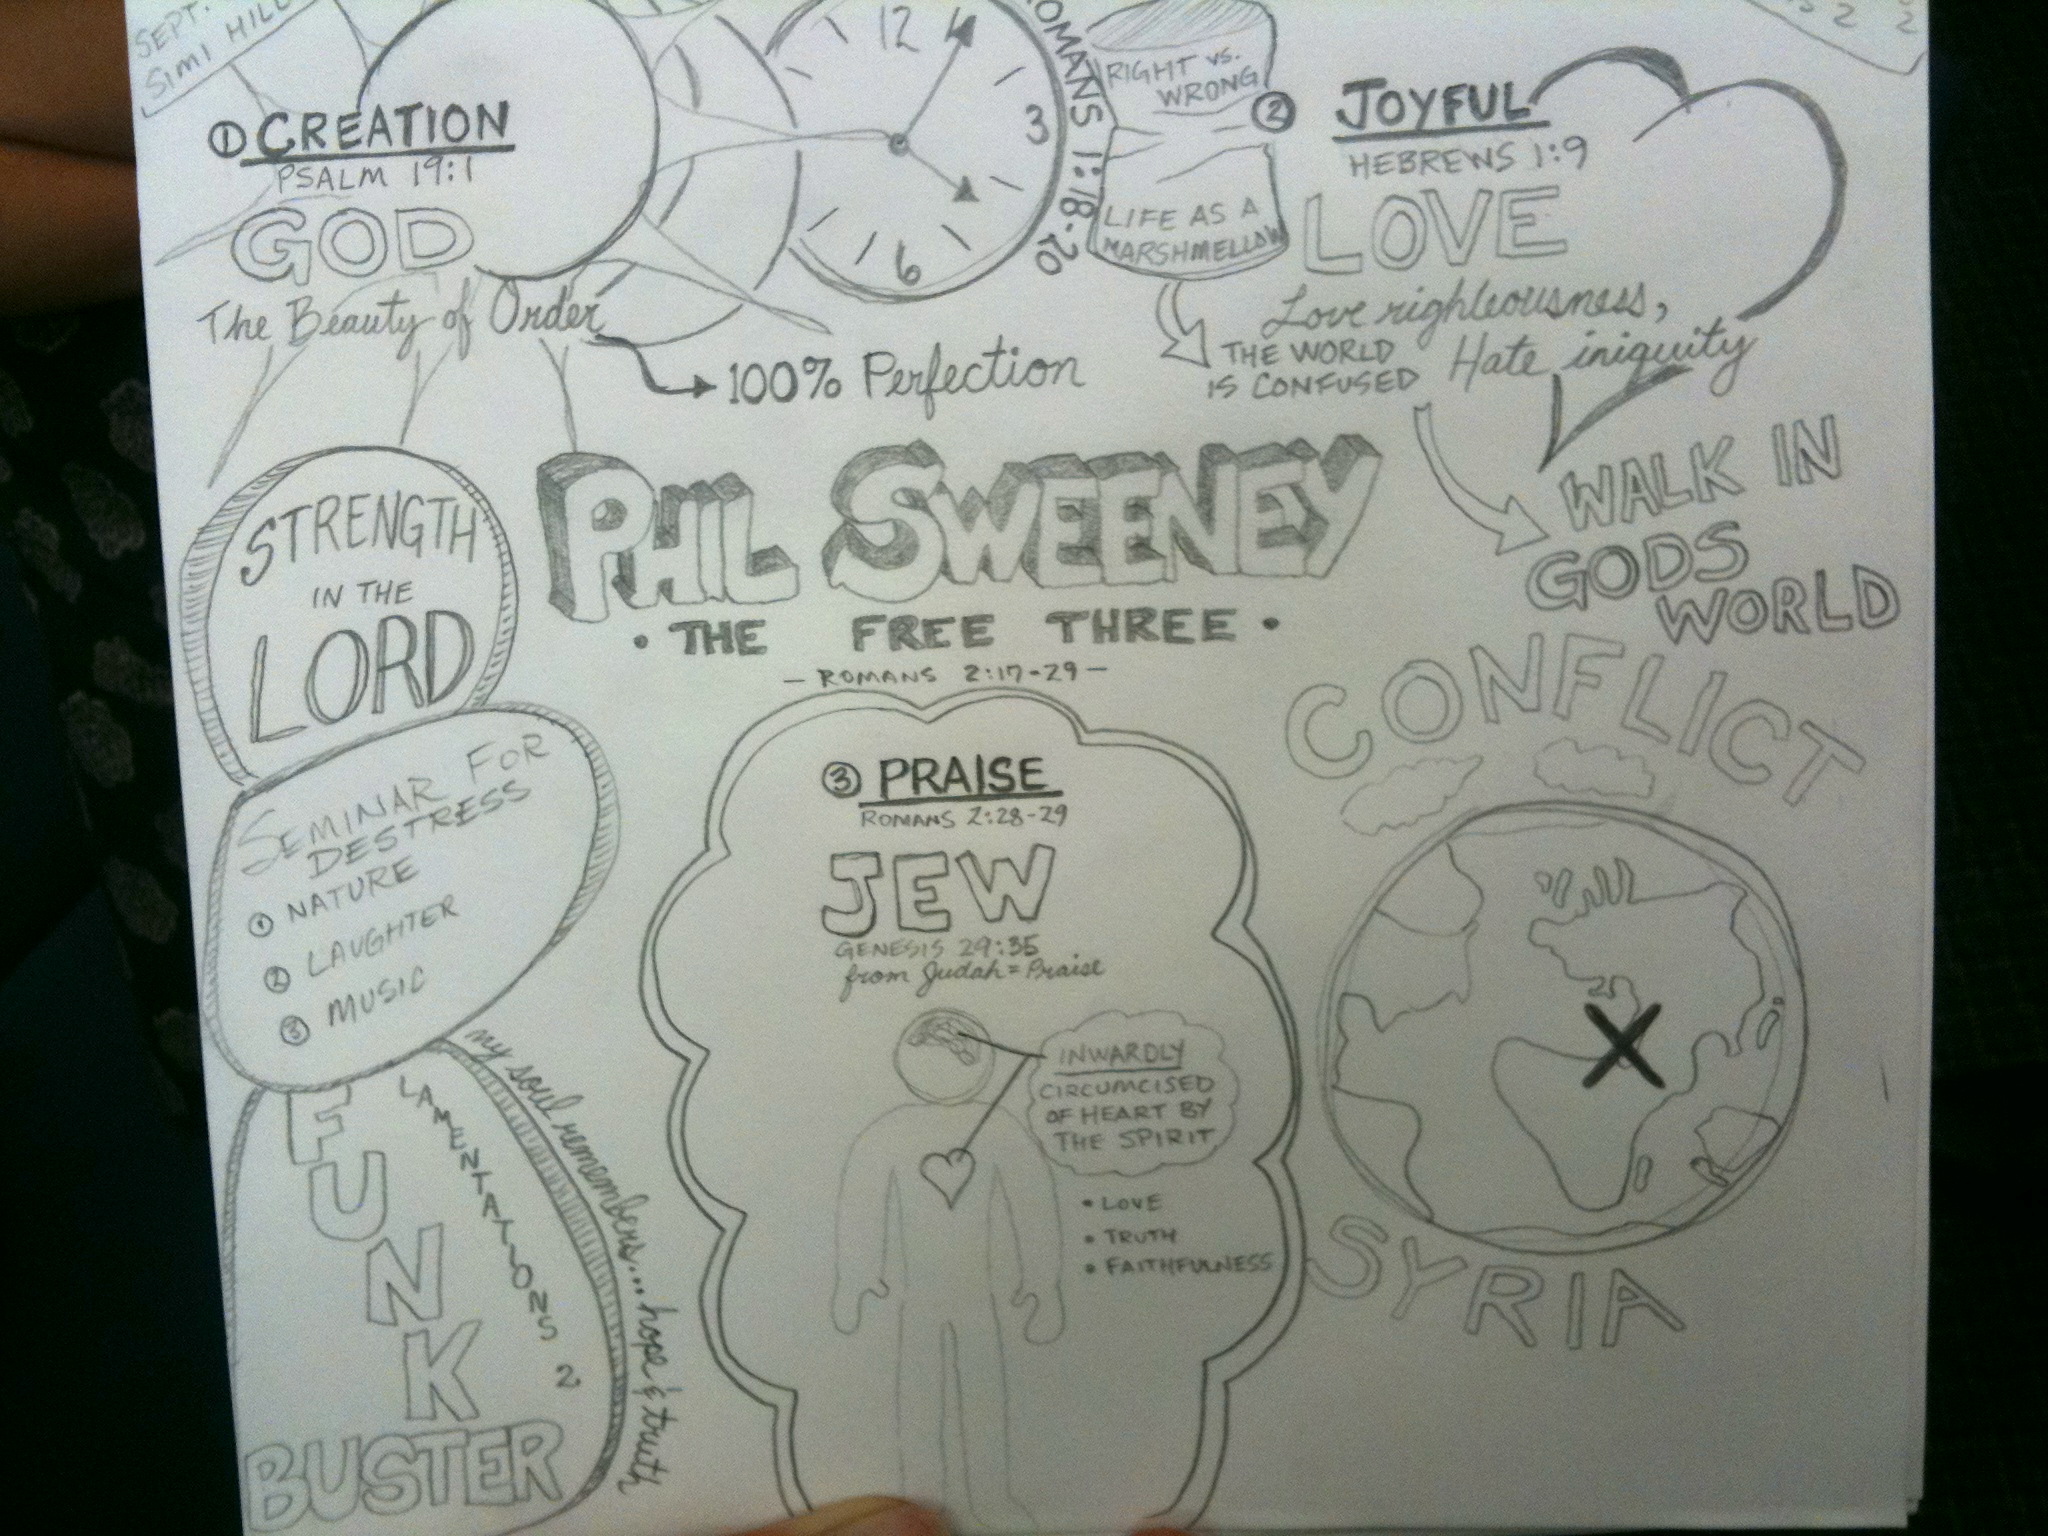 SEPT.
SIMI HILL
① CREATION
PSALM 19:1
GOD
The Beauty of Order
100% Perfection
12
3
6
ROMANS 1:18-20
RIGHT vs.
WRONG
LIFE AS A
MARSHMELLOW
THE WORLD
IS CONFUSED
② JOYFUL
HEBREWS 1:9
LOVE
Love righteousness,
Hate iniquity
WALK IN
GODS
WORLD
PHIL SWEENEY
• THE FREE THREE •
— ROMANS 2:17-29 —
STRENGTH
IN THE
LORD
SEMINAR FOR
DESTRESS
① NATURE
② LAUGHTER
③ MUSIC
FUNK
BUSTER
LAMENTATIONS 2
my soul remembers... hope & truth
③ PRAISE
ROMANS 2:28-29
JEW
GENESIS 29:35
from Judah = Praise
INWARDLY
CIRCUMCISED
OF HEART BY
THE SPIRIT
• LOVE
• TRUTH
• FAITHFULNESS
CONFLICT
SYRIA